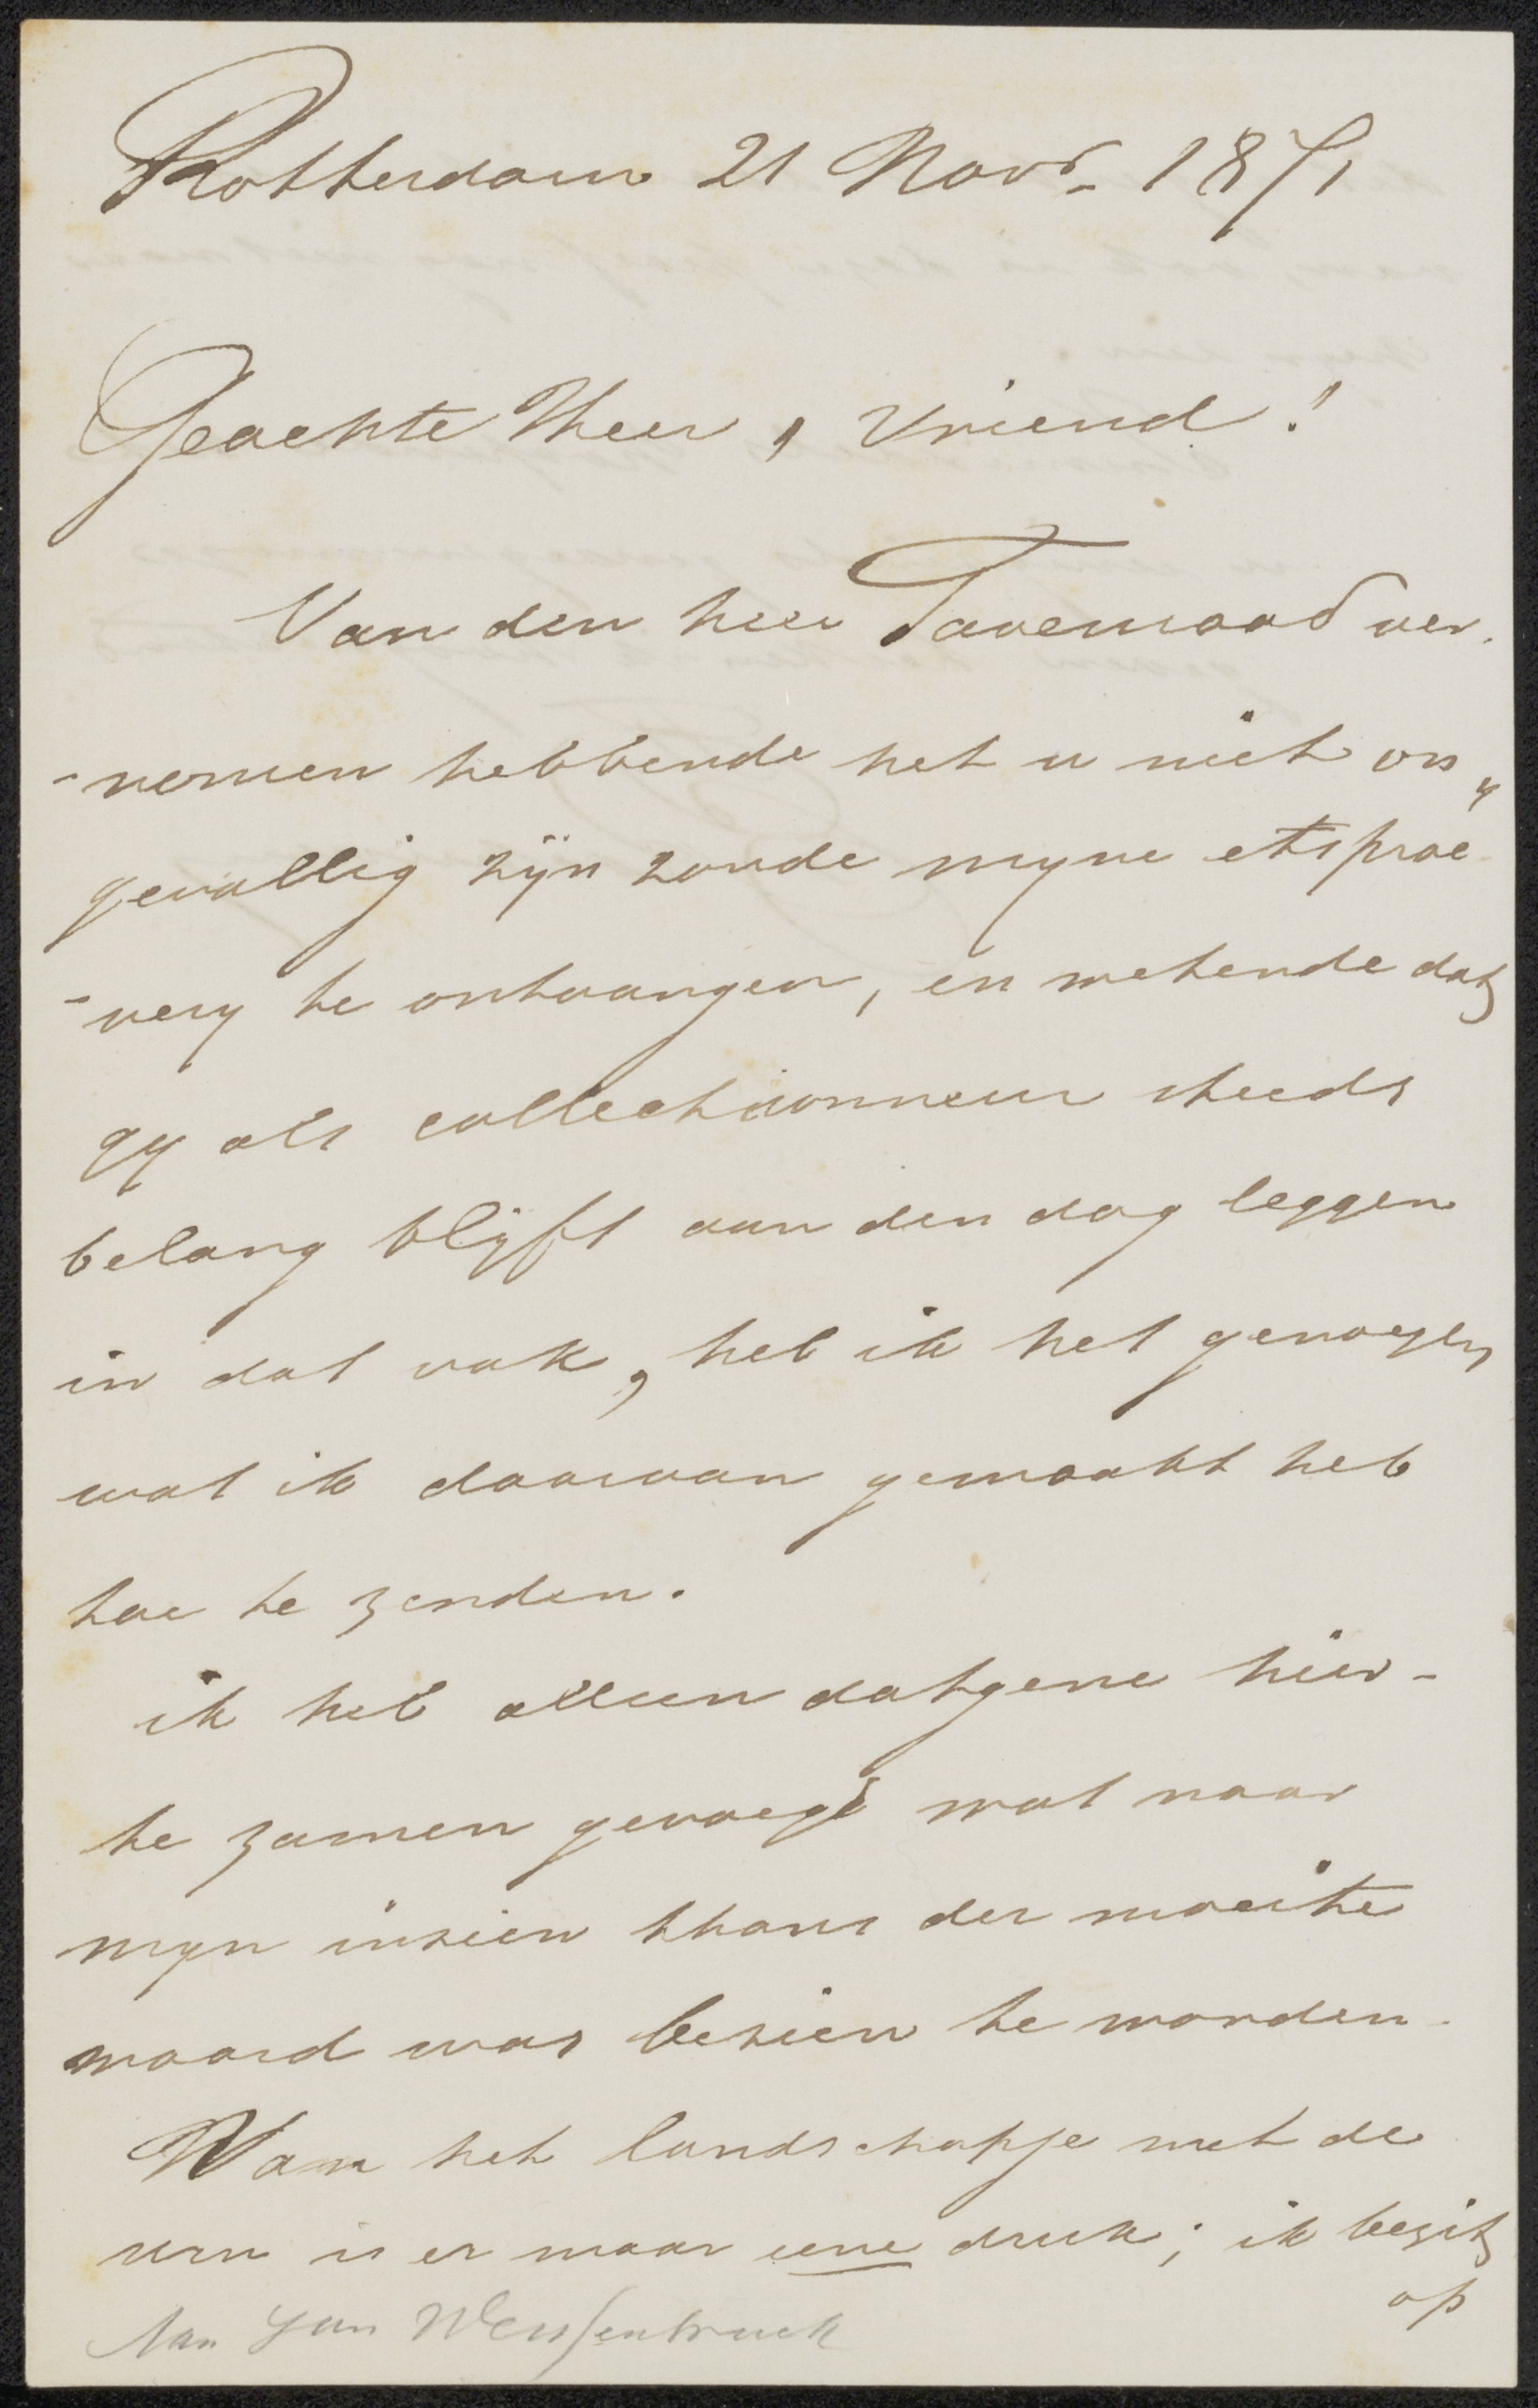 Rotterdam 21 Novr. 1871
Geachte Heer, Vriend!
Van den heer Taveniaad ver.
-nomen hebbende het u niet on„
gevallig zijn zoude myne etsproe
-very te ontvangen, en wetende dat
gy als collectionneur steeds
belang blijft aan den dag leggen
in dat vak, heb ik het genoegen
wat ik daarvan gemaakt heb
toe te zenden.
ik heb alleen datgene hier-
te zamen gevoegd wat naar
myn inzien thans der moeite
waard was bezien te worden.
Van het landschapje met de
urn is er maar eene druk; ik bezit
op
Aan Jan Weissenbruch